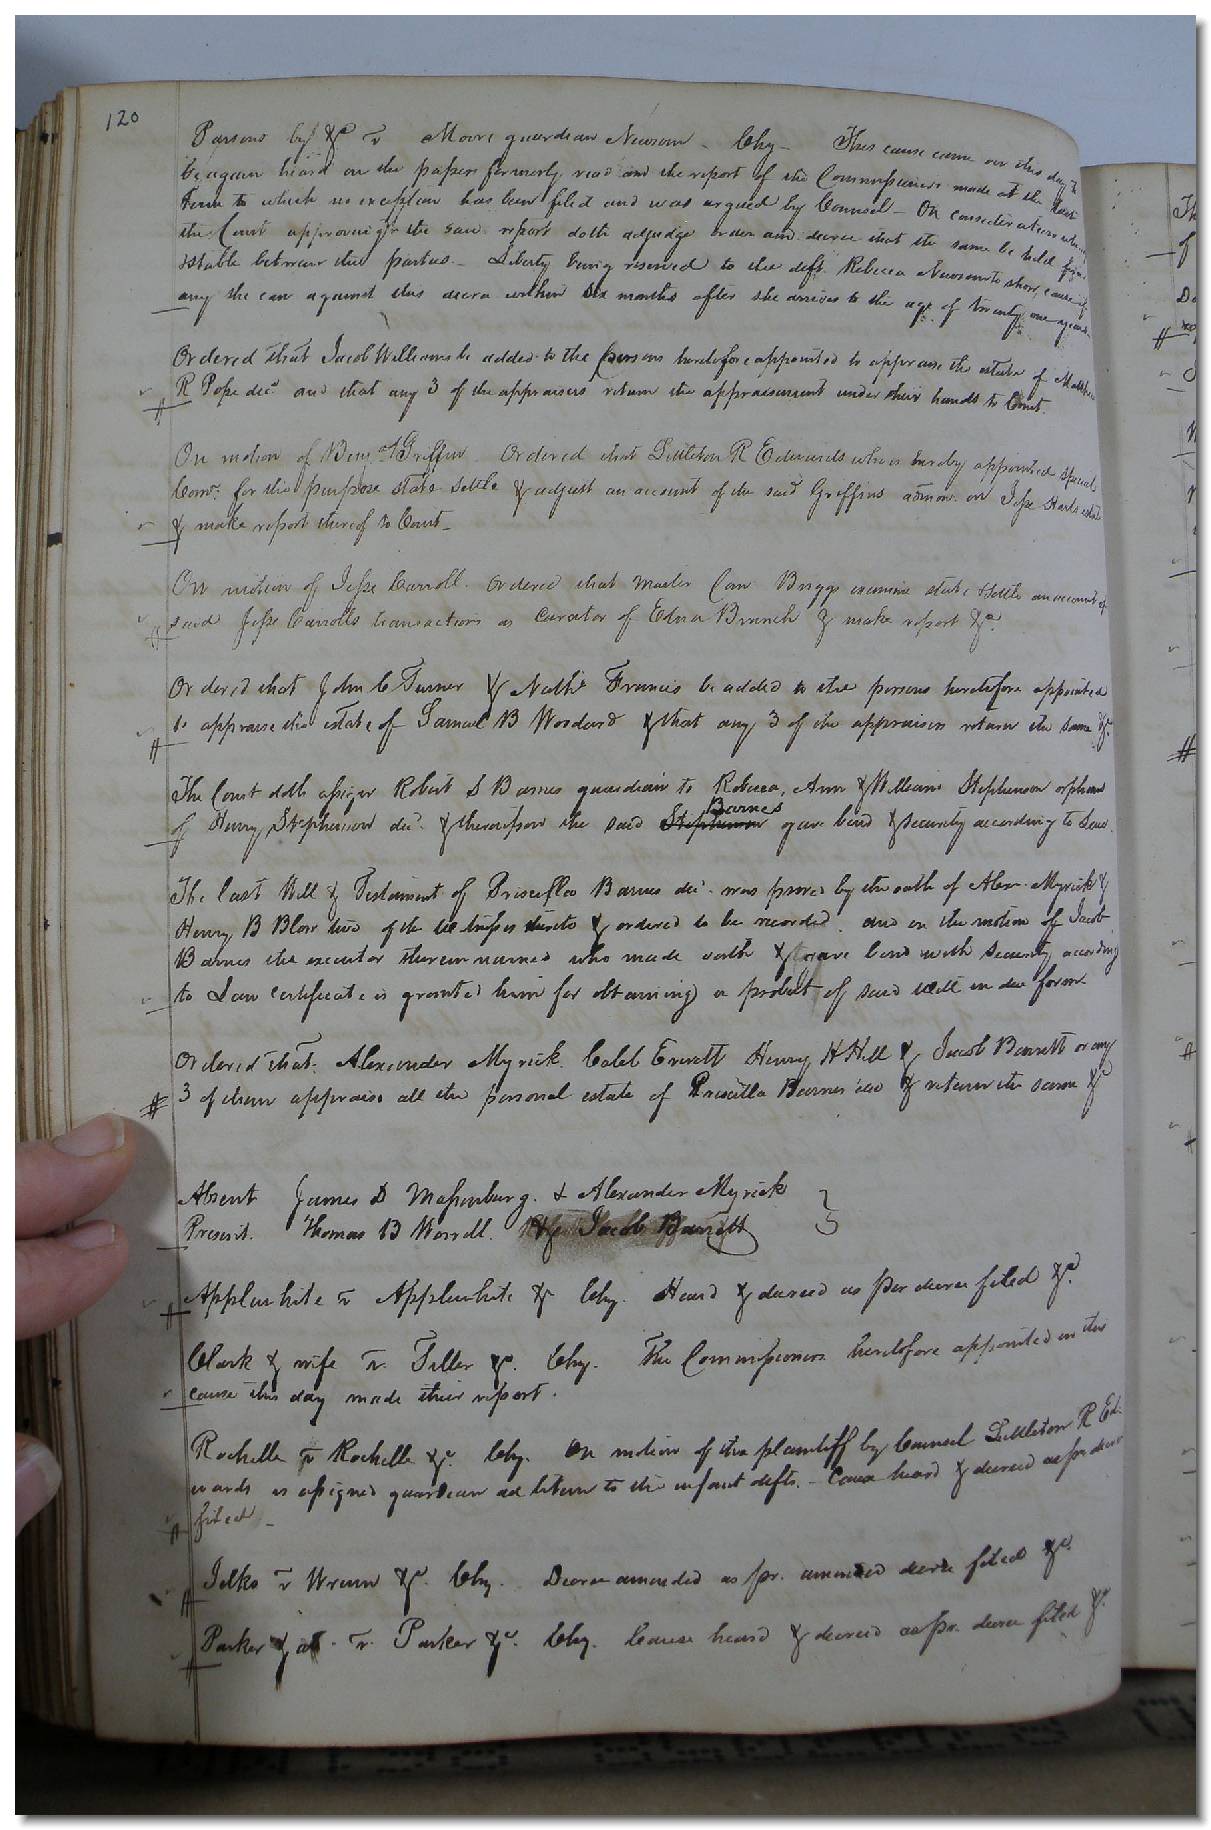 120
Parsons by &c v Moore guardian Newsom - Chy - This cause came on this day to
be again heard on the papers formerly read and the report of the Commissioners made at the last
term to which no exception has been filed and was argued by Counsel - On consideration whereof
the Court approving the said report doth adjudge order and decree that the same be held firm &
stable between the parties - Liberty being reserved to the deft. Rebecca Newsom to show cause if
any she can against this decree within six months after she arrives to the age of twenty one years
Ordered that Jacob Williams be added to the persons heretofore appointed to appraise the estate of Matthew
R Pope decd. and that any 3 of the appraisers return the appraisement under their hands to Court.
On motion of Benj. Griffin Ordered that Littleton R Edwards who is hereby appointed special
Comr. for this purpose state settle & adjust an account of the said Griffins admon. on Jesse Harts estate
& make report thereof to Court -
On motion of Jesse Carroll. Ordered that Master Com Briggs examine state & settle an account of
said Jesse Carrolls transactions as Curator of Edna Branch & make report &c.
Ordered that John C Turner & Nathl. Francis be added to the persons heretofore appointed
to appraise the estate of Samuel B Woodard & that any 3 of the appraisers return the same &c.
The Court doth assign Robert S Barnes guardian to Rebecca, Ann & William Stephenson orphans
Barnes
of Henry Stephenson decd. & thereupon the said Stephenson gave bond & security according to Law.
The last Will & Testament of Priscilla Barnes decd. was proved by the oath of Alexr. Myrick &
Henry B Blow two of the witnesses thereto & ordered to be recorded. and on the motion of Jacob
Barnes the executor therein named who made oath & gave bond with security according
to Law certificate is granted him for obtaining a probat of said will in due form
Ordered that Alexander Myrick. Caleb Everett Henry H Hill & Jacob Barrett or any
3 of them appraise all the personal estate of Priscilla Barnes decd & return the same &c
Absent James D Massenburg. & Alexander Myrick
Present. Thomas B Worrell. Jacob Barrett
Applewhite v Applewhite &c Chy. Heard & decreed as per decree filed &c.
Clark & wife v. Tiller &c. Chy. The Commissioners heretofore appointed in this
cause this day made their report.
Rochelle v Rochelle &c. Chy. On motion of the plaintiff by Counsel Littleton R Ed-
wards is assigned guardian ad litem to the infant defts. - Cause heard & decreed as pr decree
filed -
Jelks v Wrenn &c. Chy. Decree amended as pr. amended decree filed &c.
Parker & al - v. Parker &c. Chy. Cause heard & decreed as pr. decree filed &c.